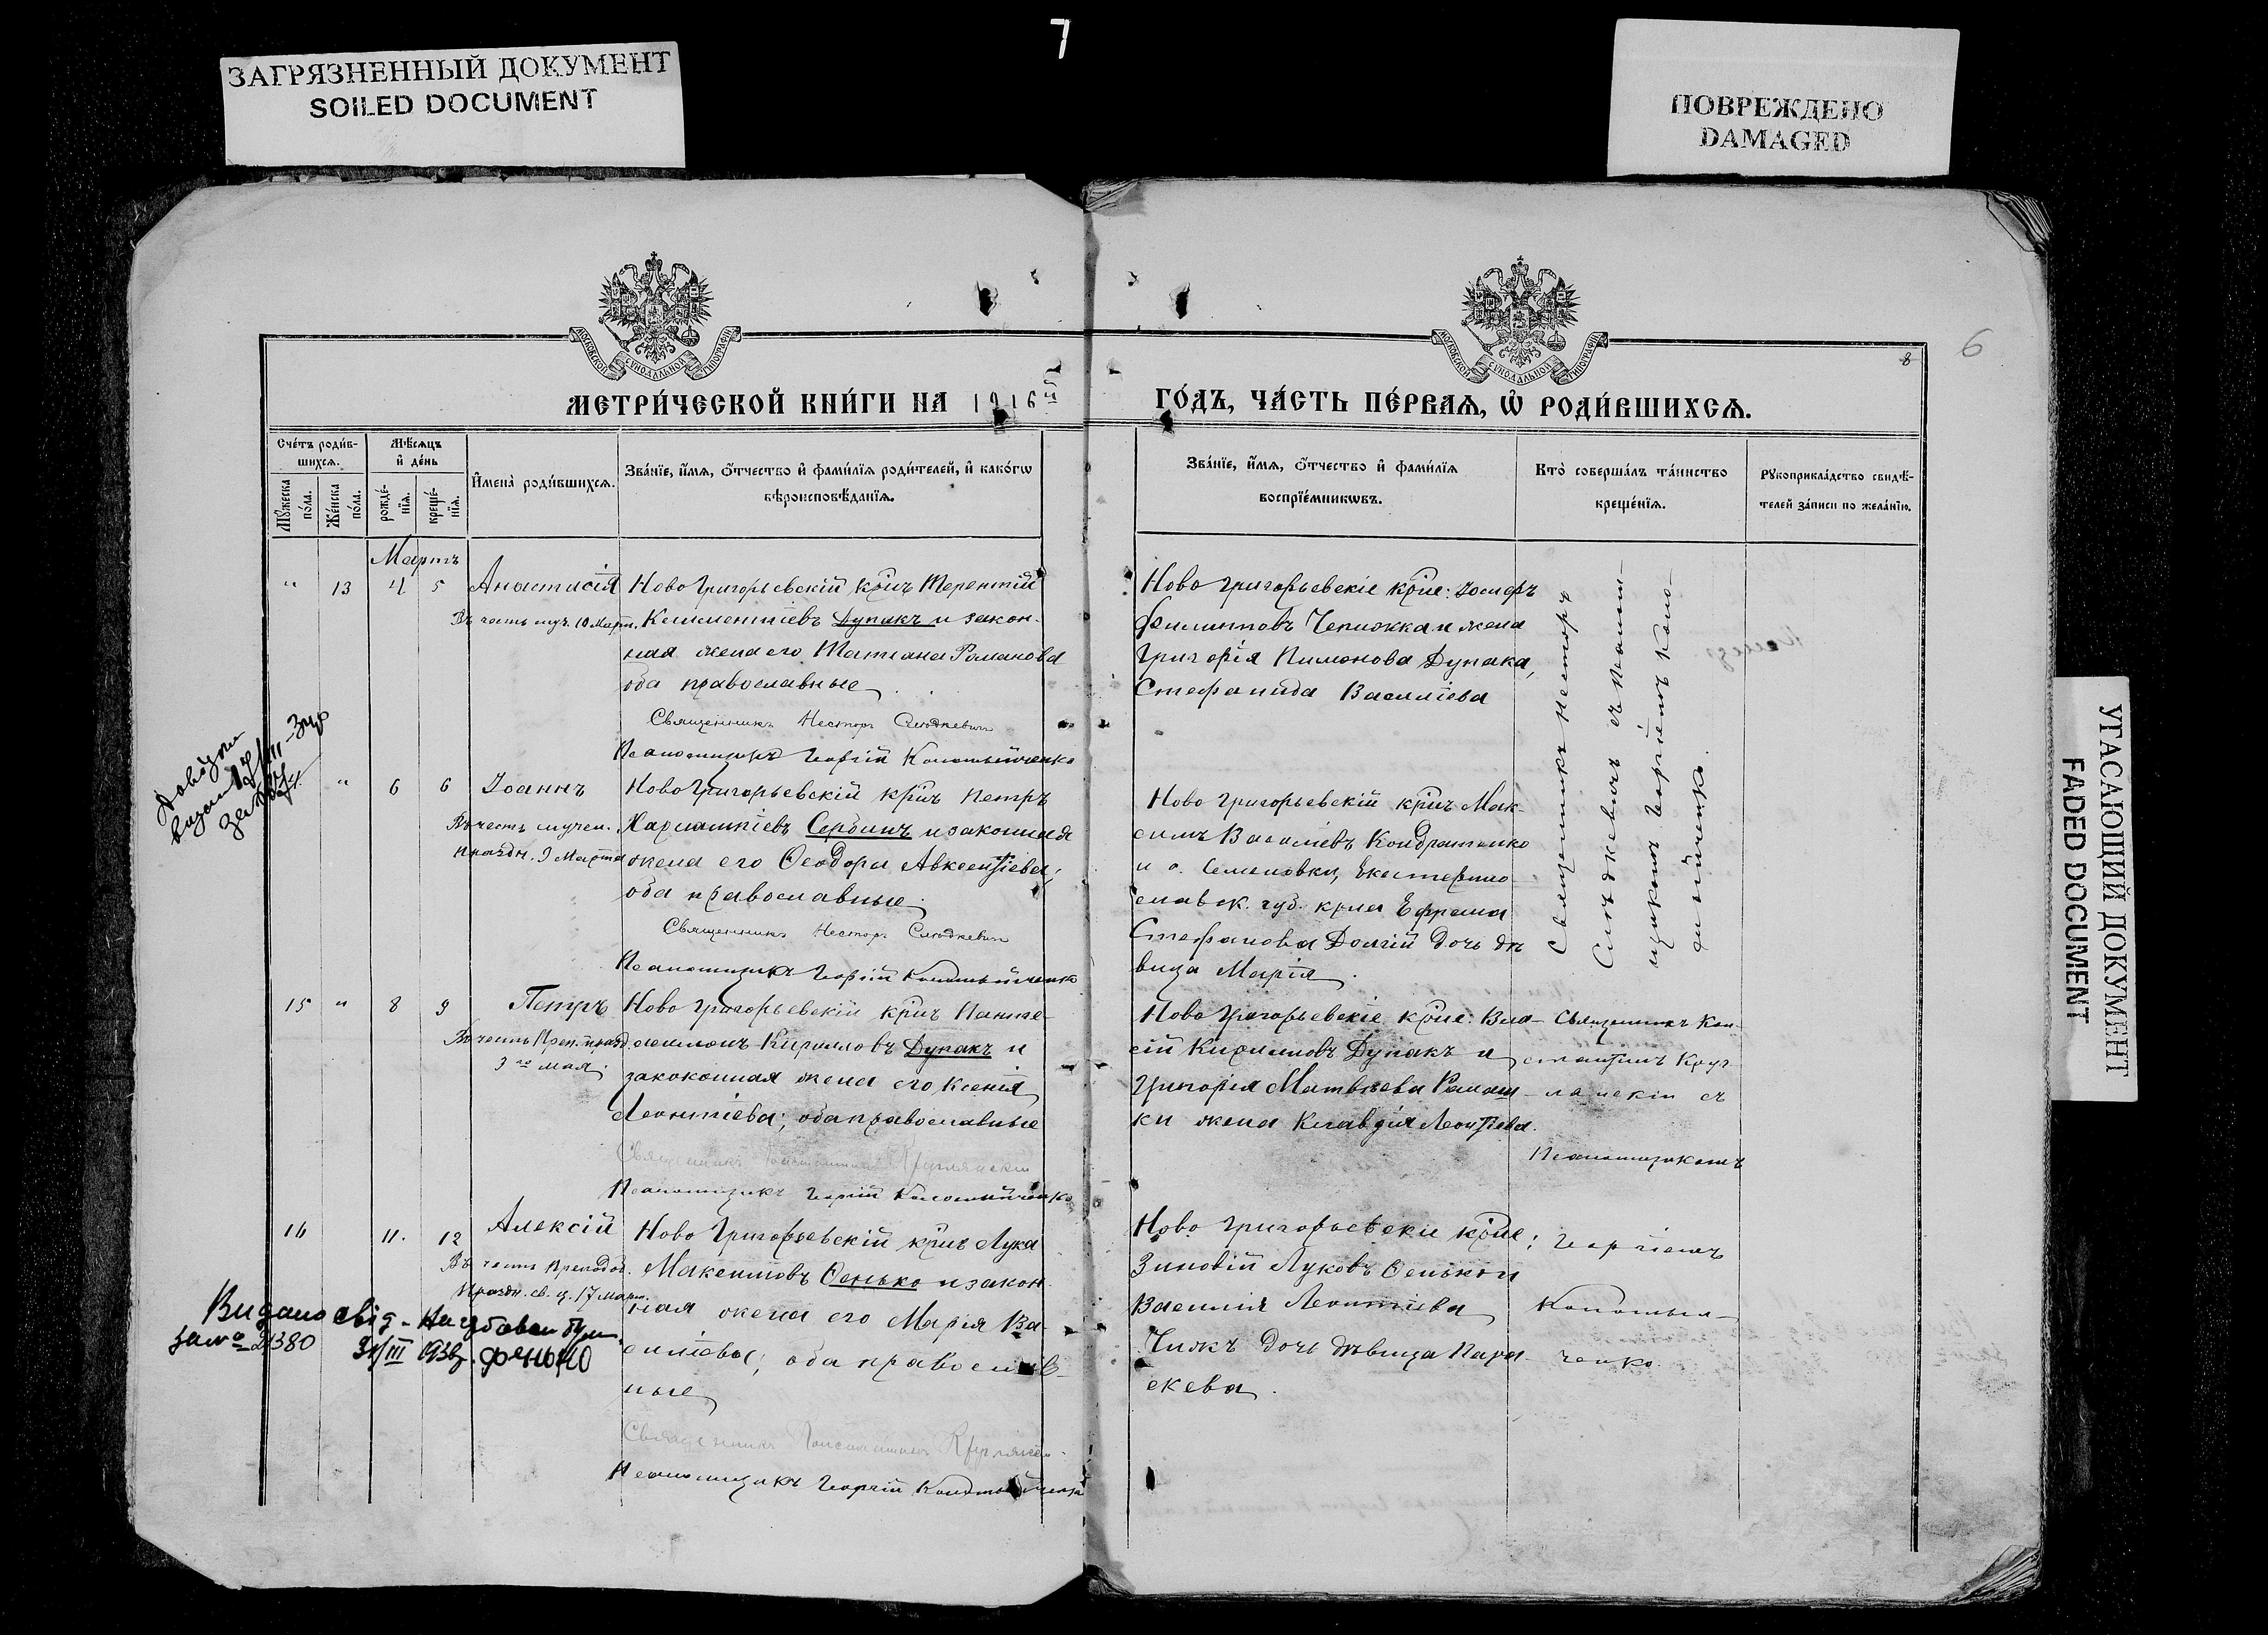 7
ЗАГРЯЗНЕННЫЙ ДОКУМЕНТ
SOILED DOCUMENT
ПОВРЕЖДЕНО
DAMAGED
УГАСАЮЩИЙ ДОКУМЕНТ
FADED DOCUMENT
6
8
МОСКОВСКОЙ СѴНОДАЛЬНОЙ ТИПОГРАФІИ
МОСКОВСКОЙ СѴНОДАЛЬНОЙ ТИПОГРАФІИ
МЕТРИ́ЧЕСКОЙ КНИ́ГИ НА 1916й
ГО́ДЪ, ЧА́СТЬ ПЕ́РВАѦ, Ѡ҆ РОДИ́ВШИХСѦ.
Сче́тъ роди́в-
шихсѧ.
Мѣ́сѧцъ
и҆ де́нь
Мꙋ́жеска
по́ла.
Же́нска
по́ла.
рожде́-
нїѧ.
креще́-
нїѧ.
И҆мена̀ роди́вшихсѧ.
Зва́нїе, и҆́мѧ, ѻ҆́тчество и҆ фами́лїѧ роди́телей, и҆ како́гѡ
вѣроисповѣ́данїѧ.
Зва́нїе, и҆́мѧ, ѻ҆́тчество и҆ фами́лїѧ
воспрїе́мникѡвъ.
Кто̀ соверша́лъ та́инство
креще́нїѧ.
Рꙋкоприкла́дство свидѣ́-
телей за́писи по жела́нїю.
Мартъ
" 13 4 5 Анастасія
Въ честь муч. 10 Март.
Ново Григорьевскій кр̃нъ Терентій
Климентіевъ Дупакъ и закон-
ная жена его Татіана Романова
оба православные
Священникъ Несторъ
Псаломщикъ Георгій Коломыйченко
Ново Григорьевскіе кр̃не: Іосифъ
Филиповъ и жена
Григорія Пимонова Дупака,
Стефанида Василіева
Священникъ Несторъ
съ псалом-
щикомъ Георгіемъ Коло-
мыйченко.
" 6 6 Іоаннъ
Въ честь мучен.
праздн. 9 Марта
Ново Григорьевскій кр̃нъ Петръ
Харлампіевъ Сербинъ и законная
жена его Ѳеодора Авксентіева;
оба православные.
Священникъ Несторъ
Псаломщикъ Георгій Коломыйченко
Ново Григорьевскій кр̃нъ Мак-
симъ Василіевъ Кондратенко
и с. Семеновки, Екатерино-
славск. губ. кр̃на Ефрема
Стефанова Долгій дочь дѣ-
вица Марія.
15 " 8 9 Петръ
Въ честь Преп. празд.
3го мая.
Ново Григорьевскій кр̃нъ Панте-
леимонъ Кирилловъ Дупакъ и
закоконная жена его Ксенія
Леонтіева; оба православные
Священникъ Константинъ Круглянскій
Псаломщикъ Георгій Коломыйченко
Ново Григорьевскіе кр̃не: Вла-
сій Кирилловъ Дупакъ и
Григорія Матвѣева Ромаш-
ки жена Клавдія Леонтіева.
Священникъ Кон-
стантинъ Круг-
лянскій съ
Псаломщикомъ
16 11. 12 Алексій
Въ честь Преподоб.
Праздн. св. ц. 17 Март.
Ново Григорьевскій кр̃нъ Лука
Максимовъ Сенько и закон-
ная жена его Марія Ва-
силіева; оба православ-
ные
Священникъ Константинъ Круглянскій
Псаломщикъ Георгій Коломыйченко
Ново Григорьевскіе кр̃не:
Зиновій Луковъ Сенько и
Василія Леонтіева
Чижъ дочь дѣвица Пара-
скева.
Георгіемъ
Коломый-
ченко.
Видано свід-
за № 21380
31/III 193